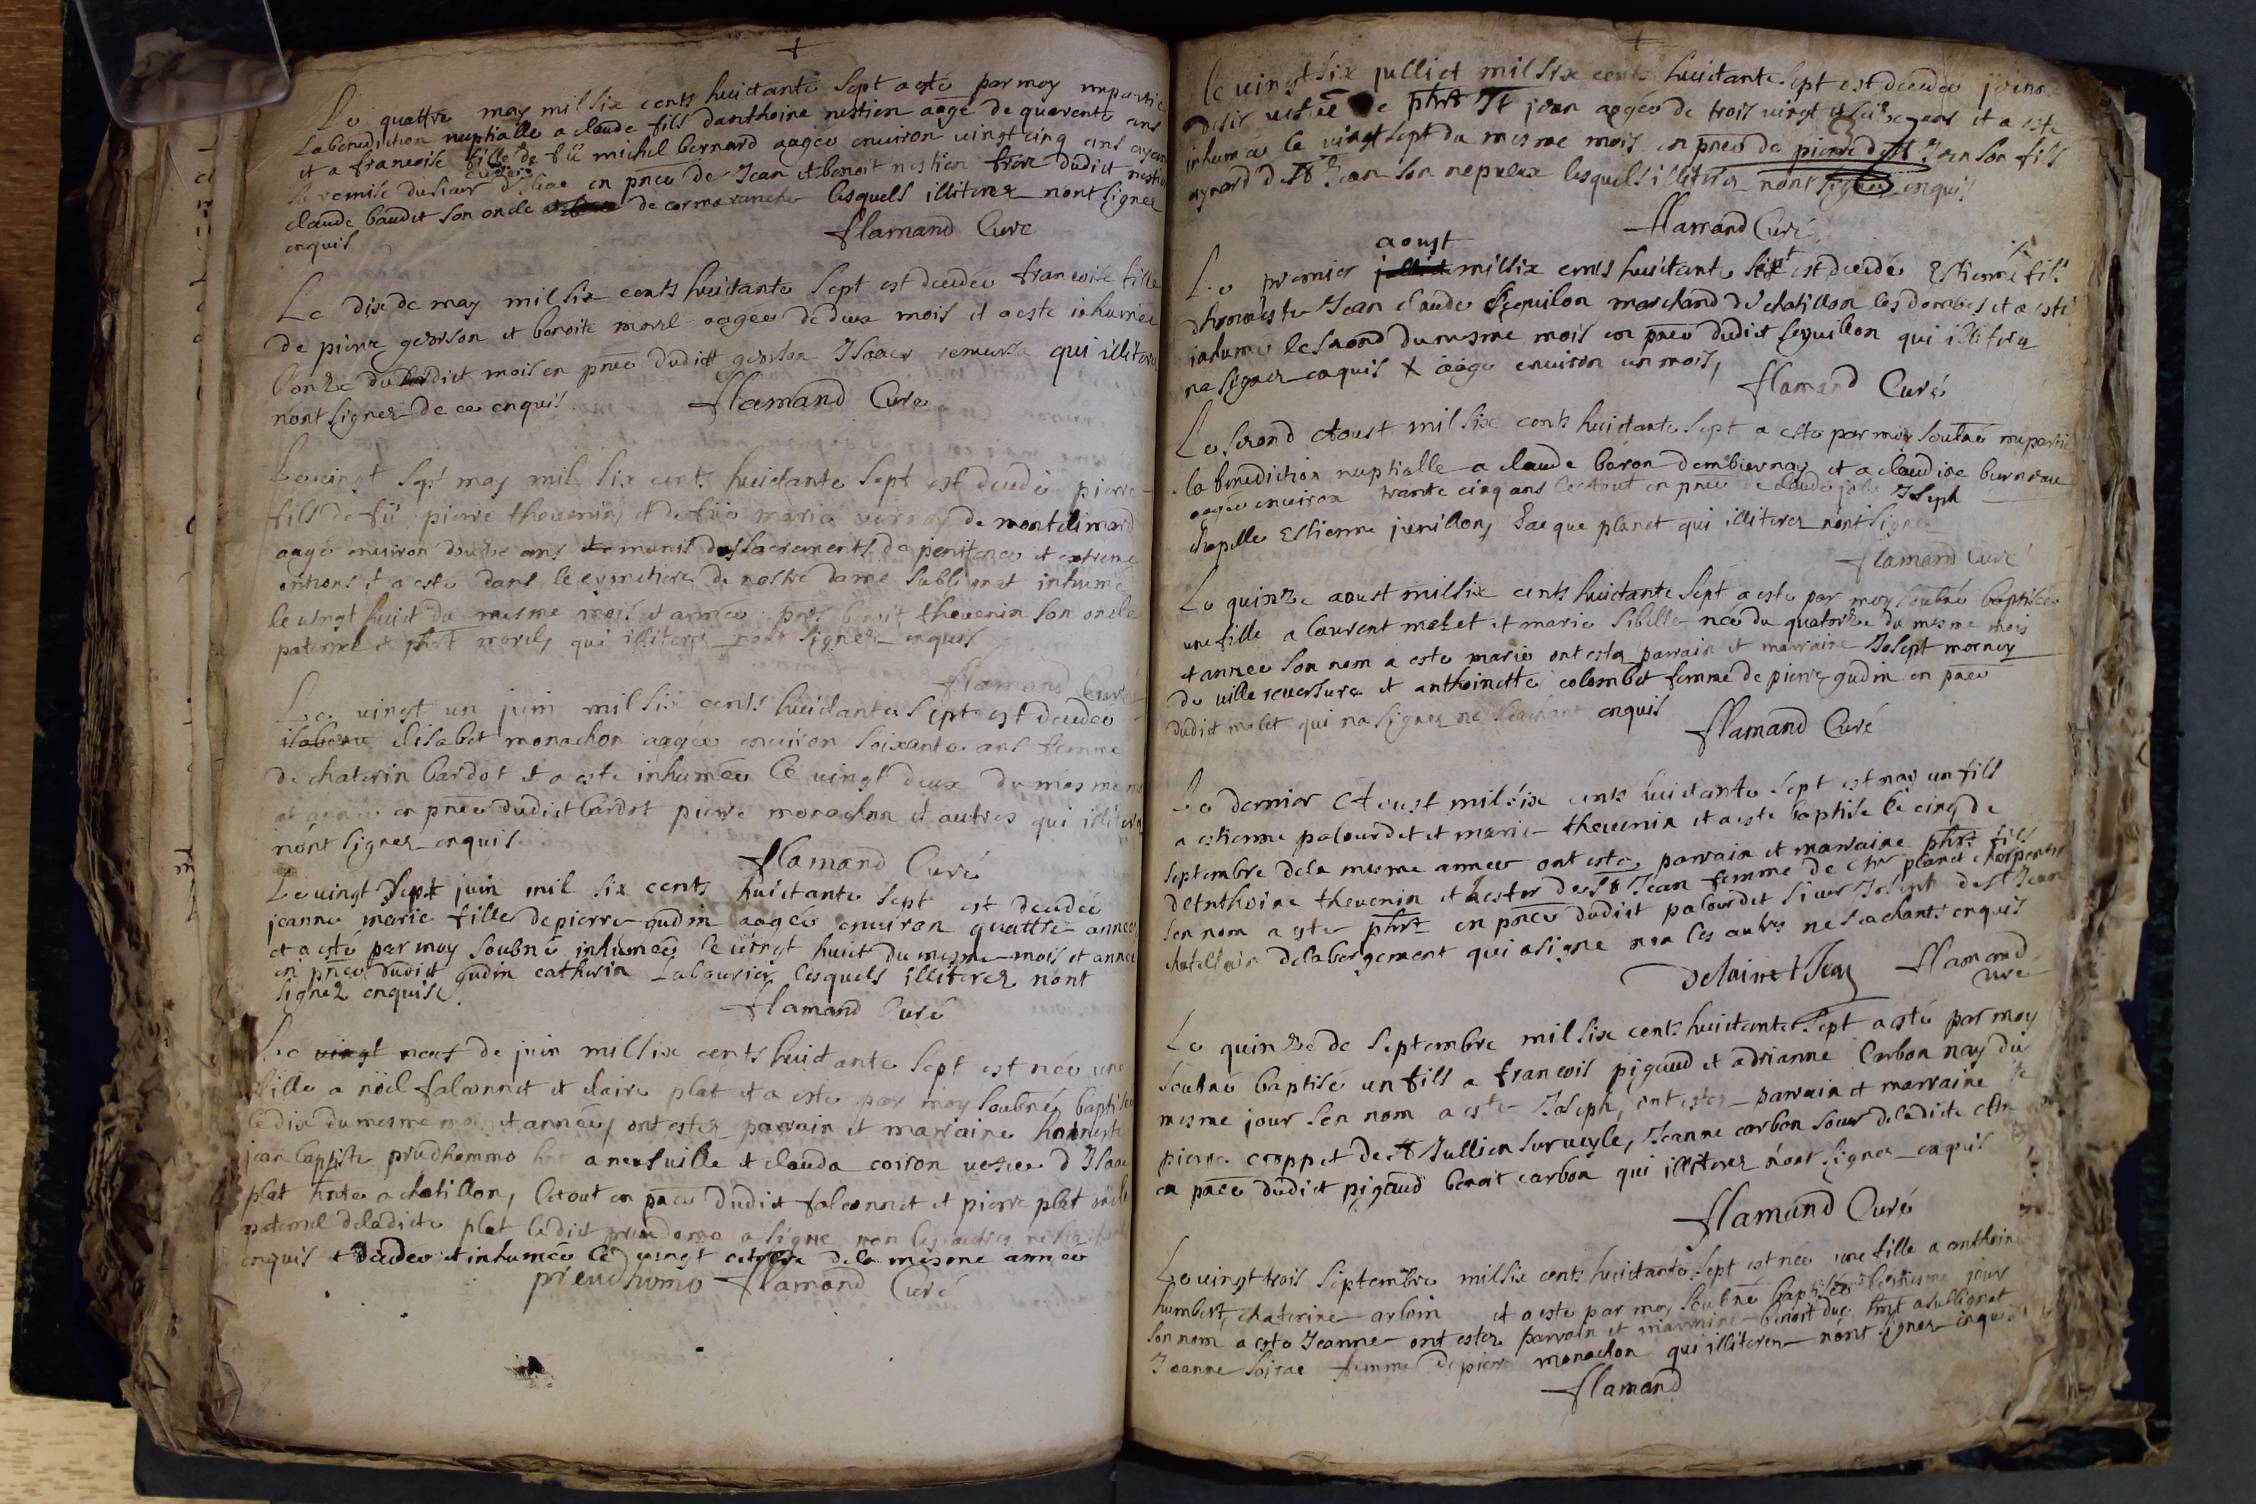 Le quattre may mil six cents huictante sept a esté par moy impartie
la benediction nuptialle a claude fils danthoine nestien aagé de quarente ans
et a francoise fille de fü michel bernard aagée environ vingt cinq ans ayant
la remise du sieur curé en pnce de Jean et benoit nestien frere dudict nestien
claude baudet son oncle de cormoranche lesquels illiterez nont signez
enquis
flamand Curé
Le dix de may mil six cents huictante sept est decedee francoise fille
de pierre georson et benoite morel aagee de deux mois et a este inhumée
lonze dudict mois en pnce dudict georson Isaac qui illiterez
nont signez de ce enquis
flamand Curé
Le vingt sept may mil six cents huictante sept est decedé pierre
fils de fü pierre thevenin et de füe marie vernay de montelimard
aagé environ douze ans munis des sacrements de penitence et extreme
onctions et a esté dans le cymetiere de nostre dame sublignat inhumé
le vingt huict du mesme mois et année pnts benoit thevenin son oncle
paternel et phbt morely qui illiterez nont signez enquis
flamand Curé
Le vingt un juin mil six cents huictante sept est decedee
elisabet monachon aagée environ soixante ans femme
de chaterin bardot et a este inhumée le vingt deux du mesme mois
et année en pnce dudict bardot pierre monachon et autres qui illiterez
nont signez enquis
flamand Curé
Le vingt sept juin mil six cents huictante sept est decedée
jeanne marie fille de pierre gudin aagée environ quattre années
et a esté par moy soubné inhumée le vingt huict du mesme mois et année
en pnce dudict gudin catherin Labourier lesquels illiterez nont
signez enquise
flamand Curé
Le vingt neuf de juin mil six cents huictante sept est née une
fille a noël falconnet et claire plat et a este par moy soubné baptisée
le dix du mesme mois et année, ont estez parrain et marraine honneste
jean baptiste prudhomme a neufville et clauda coison vefve d Isaac
plat hoste a chatillon, le tout en pnce dudict falconnet et pierre plat oncle
paternel deladicte plat ledict prudomo a signé non les autres ne
enquis et decedee et inhumée le vingt octobre de la mesme année
preudhomo flamand Curé
le vingt six julliet mil six cents huictante sept est decedee
vefve de phbt St jean aagée de trois vingt et seize ans et a este
inhumée le vingt sept du mesme mois en pnce de pierre de St Jean son fils
aynard de St Jean son nepveux lesquels illiterez nont signez enquis
flamand Curé
aoust
Le premier julliet mil six cents huictante sept est decedé Estienne fils
dhonneste Jean claude sequilon marchand de chatillon les dombes et a esté
inhumé le second du mesme mois en pnce dudict sequillon qui illiterez
na signez enquis X aagé environ un mois,
flamand Curé
Le second Aoust mil six cents huictante sept a esté par moy soubné impartie
la benediction nuptialle a claude baron dembiernay et a claudine burnraue
aagée environ trante cinq ans le tout en pnce de claude joly Joseph
chapelle Estienne junillony Jacque planet qui illiterez nont signez
flamand Curé
Le quinze aoust mil six cents huictante sept a este par moy soubné baptisée
une fille a laurent molet et marie sibille née du quatorze du mesme mois
et année son nom a este marie ont estez parrain et marraine Josept mornay
de ville reversure et anthoinette colombet femme de pierre gudin en pnce
dudict molet qui na signez ne scachant enquis
flamand Curé
Le dernier Aoust mil six cents huictante sept est nay un fils
a estienne palourdet et marie thevenin et a este baptise le cinq de
septembre de la mesme année ont estez parrain et marraine phbt fils
dAnthoine thevenin et hester de St Jean femme de Chr planet charpentier
son nom a este phbt en pnce dudict palourdet sieur Joseph de St Jean
chatellain delabergement qui a signé non les autres ne scachants enquis
Desainct Jean flamand
Curé
Le quinze de septembre mil six cents huictante sept a esté par moy
soubné baptisé un fils a francois pigaud et adrianne Carbon nay du
mesme jour son nom a este Joseph, ont estez parrain et marraine
pierre croppet de St Jullien sur veyle, Jeanne carbon soeur deladicte
en pnce dudict pigaud benoit carbon qui illiterez nont signez enquis
flamand Curé
Le vingt trois septembre mil six cents huictante sept est née une fille a anthoine
humbert, chaterine arloin et a este par moy soubné baptisée le mesme jour
son nom a este Jeanne ont estez parrain et marraine benoit duc hnt a sublignat
Jeanne soirae femme de pierre monachon qui illiterez nont signez enquis
flamand